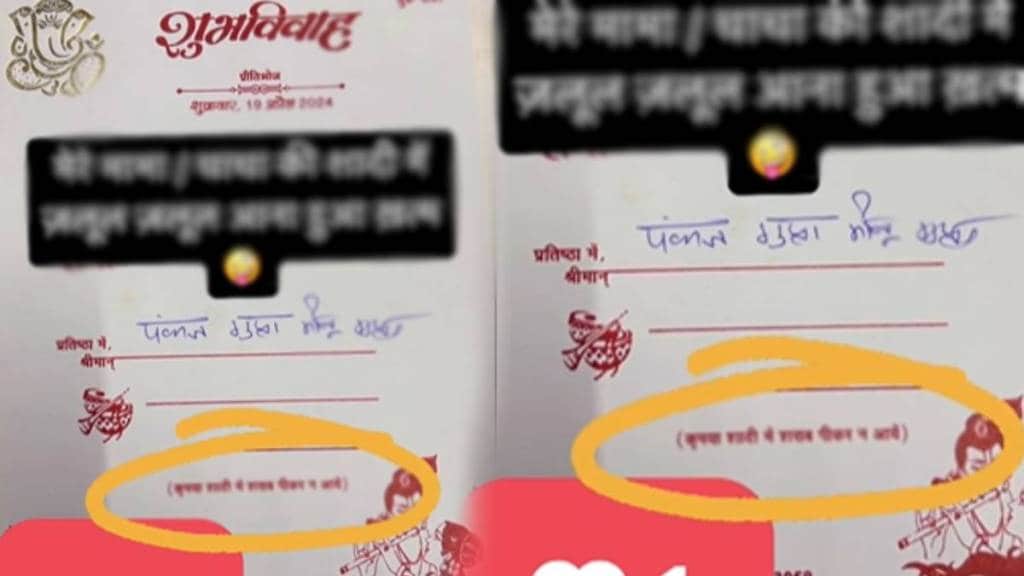 शुभविवाह
प्रीतिभोज
शुक्रवार, 19 अप्रैल 2024
मेरे मामा / चाचा की शादी में
ज़लूल ज़लूल आना हुआ ख़त्म
पंकज
प्रतिष्ठा में,
श्रीमान्
(कृपया शादी में शराब पीकर न आयें)
मेरे मामा / चाचा की शादी में
ज़लूल ज़लूल आना हुआ ख़त्म
पंकज
प्रतिष्ठा में,
श्रीमान्
(कृपया शादी में शराब पीकर न आयें)